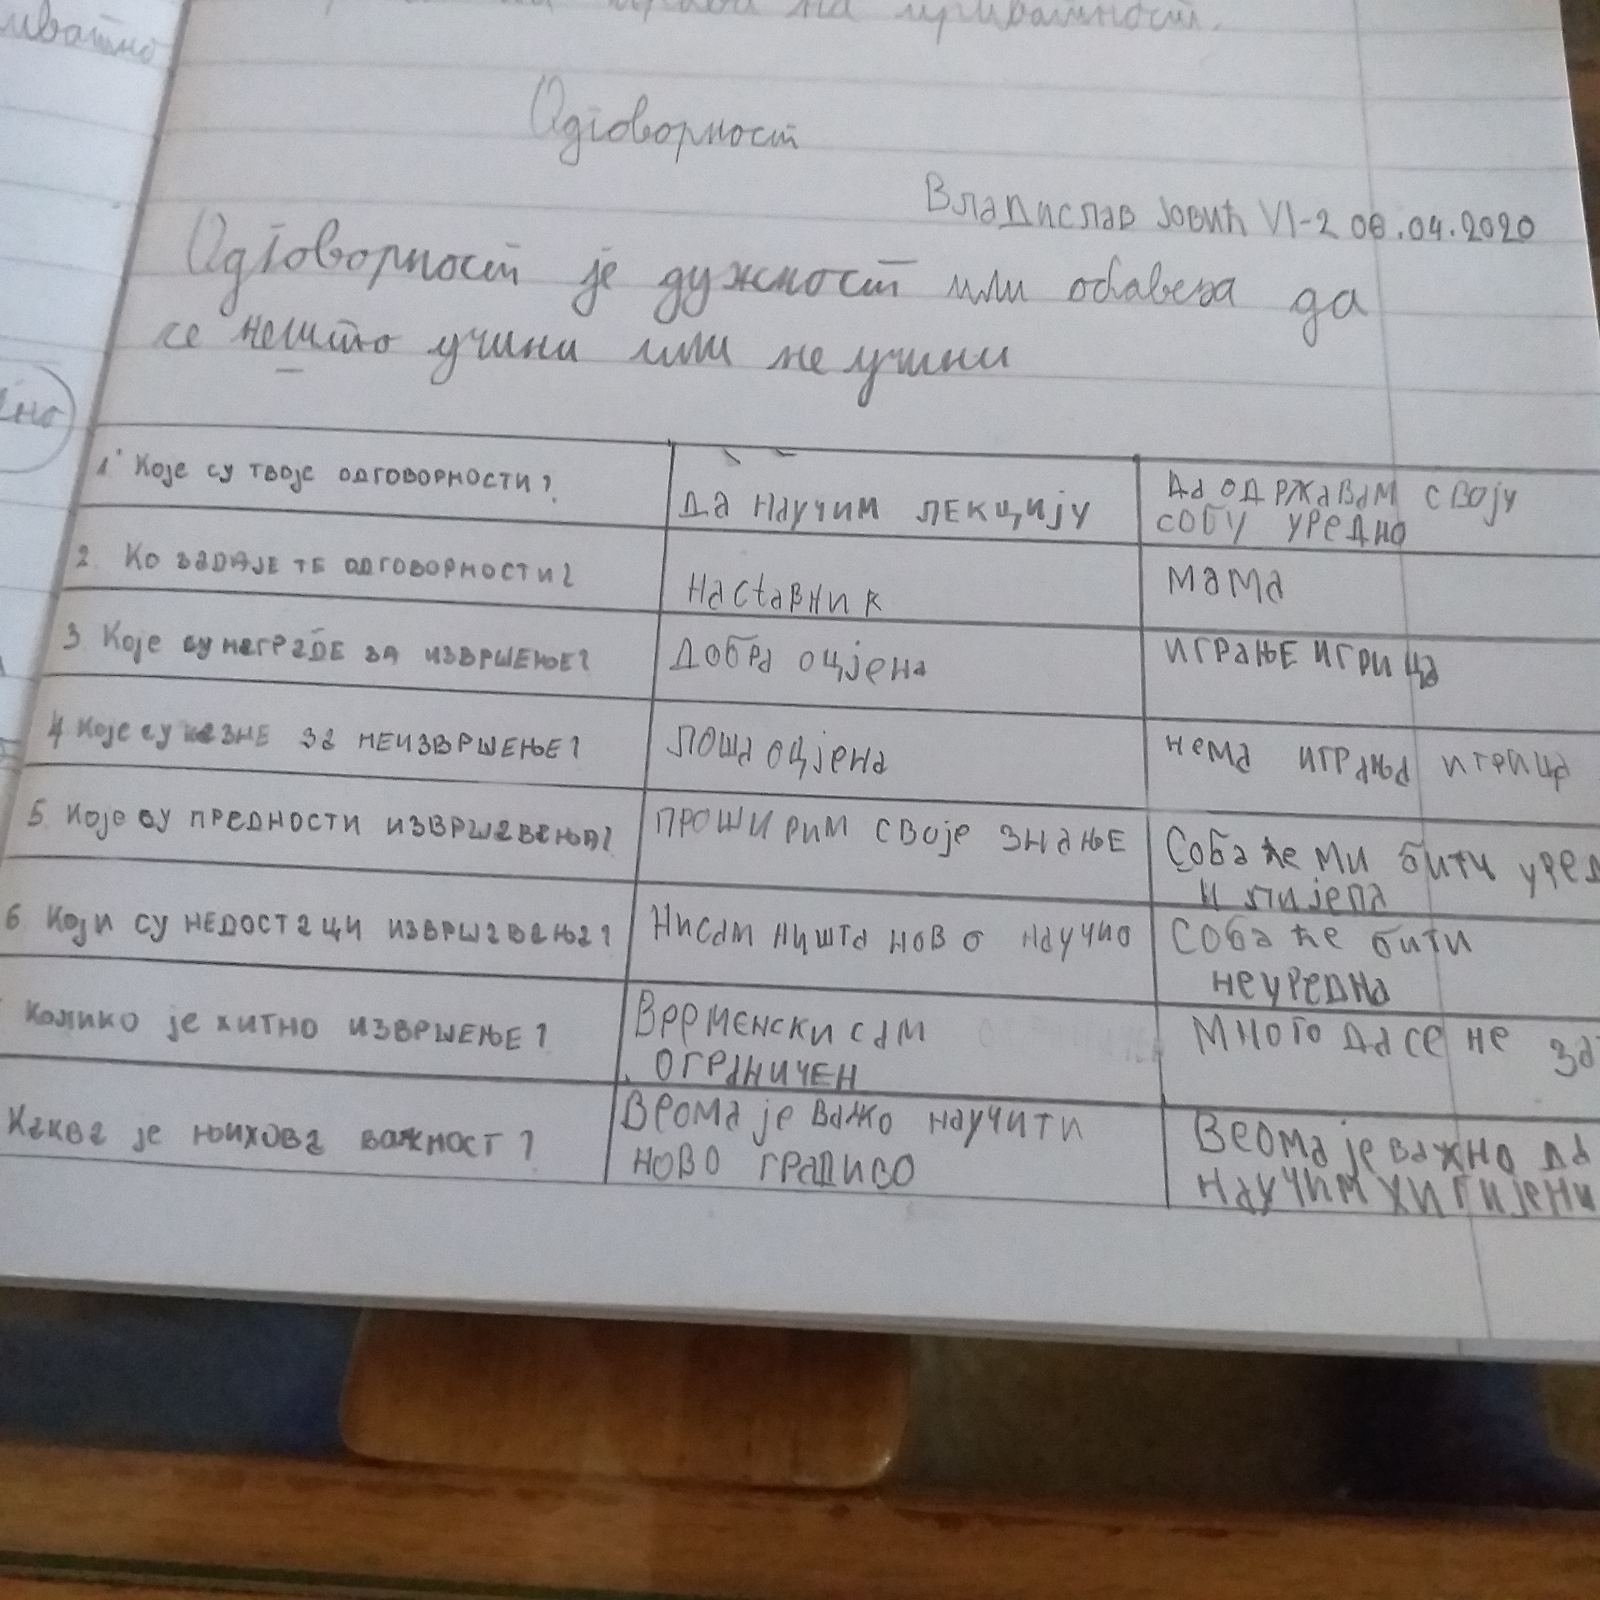 на приватност.
Одговорност
Владислав Јовић VI-2 06.04.2020
Одговорност је дужност или обавеза да
се нешто учини или не учини
1 Које су твоје одговорности?
Да научим лекцију
Да одржавам своју
собу уредно
2. Ко задаје те одговорности?
Наставник
мама
3 Које су награде за извршење?
Добра оцјена
играње игрица
4 Које су казне за неизвршење?
лоша оцјена
нема играња игрица
5 Које су предности извршавања?
проширим своје знање
Соба ће ми бити уред
и лијепа
6 Који су недостаци извршавања?
Нисам ништа ново научио
Соба ће бити
неуредна
Колико је хитно извршење?
Временски сам
ограничен
Много да се не за
Каква је њихова важност?
Веома је важно научити
ново градиво
Веома је важно да
научим хигијени